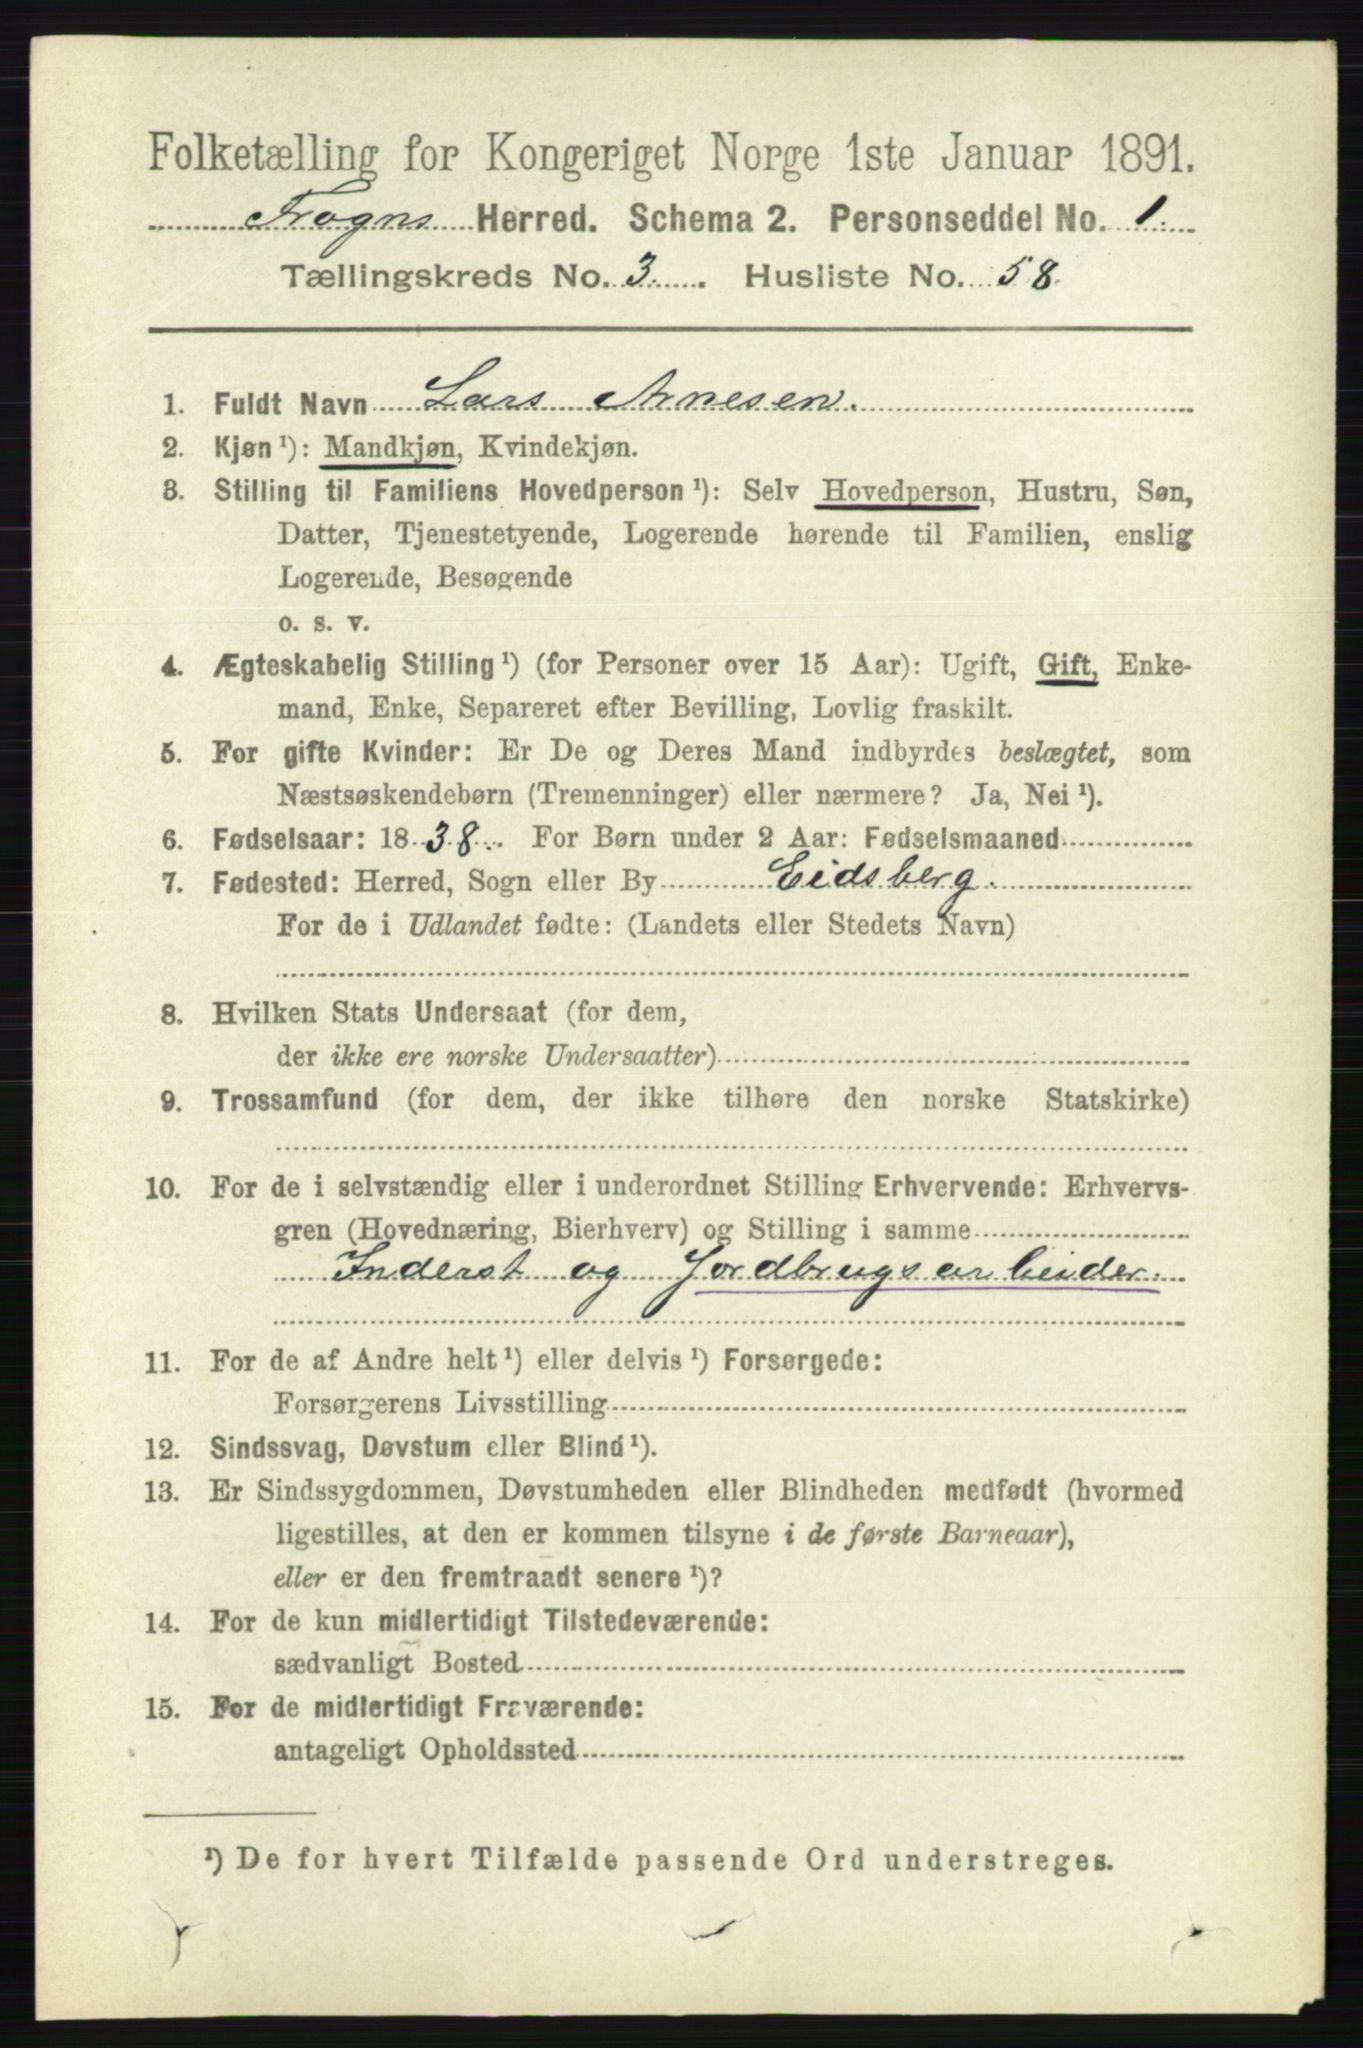 Folketælling for Kongeriget Norge 1ste Januar 1891.
Frogns Herred. Schema 2. Personseddel No. 1.
Tællingskreds No. 3. Husliste No. 58.
1. Fuldt Navn Lars Arnesen.
2. Kjøn¹): Mandkjøn, Kvindekjøn.
3. Stilling til Familiens Hovedperson¹): Selv Hovedperson, Hustru, Søn,
Datter, Tjenestetyende, Logerende hørende til Familien, enslig
Logerende, Besøgende
o. s. v.
4. Ægteskabelig Stilling¹) (for Personer over 15 Aar): Ugift, Gift, Enke-
mand, Enke, Separeret efter Bevilling, Lovlig fraskilt.
5. For gifte Kvinder: Er De og Deres Mand indbyrdes beslægtet, som
Næstsøskendebørn (Tremenninger) eller nærmere? Ja, Nei¹).
6. Fødselsaar: 1838. For Børn under 2 Aar: Fødselsmaaned
7. Fødested: Herred, Sogn eller By Eidsberg.
For de i Udlandet fødte: (Landets eller Stedets Navn)
8. Hvilken Stats Undersaat (for dem,
der ikke ere norske Undersaatter)
9. Trossamfund (for dem, der ikke tilhøre den norske Statskirke)
10. For de i selvstændig eller i underordnet Stilling Erhvervende: Erhvervs-
gren (Hovednæring, Bierhverv) og Stilling i samme
Inderst og Jordbrugsarbeider.
11. For de af Andre helt¹) eller delvis¹) Forsørgede:
Forsørgerens Livsstilling
12. Sindssvag, Døvstum eller Blind¹).
13. Er Sindssygdommen, Døvstumheden eller Blindheden medfødt (hvormed
ligestilles, at den er kommen tilsyne i de første Barneaar),
eller er den fremtraadt senere¹)?
14. For de kun midlertidigt Tilstedeværende:
sædvanligt Bosted
15. For de midlertidigt Fraværende:
antageligt Opholdssted
¹) De for hvert Tilfælde passende Ord understreges.